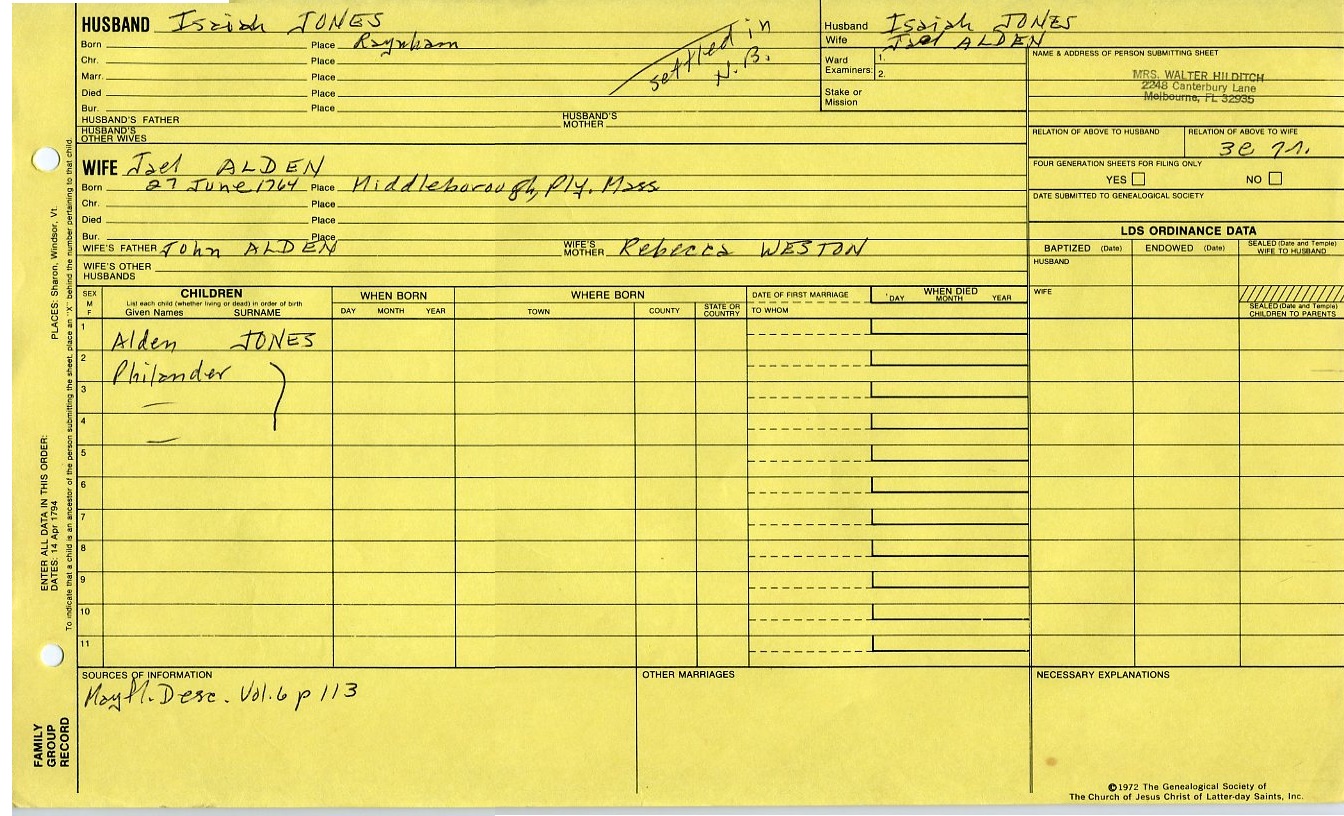 HUSBAND Isaiah JONES
Born Place Raynham
Chr. Place
Marr. Place
Died Place
Bur. Place
settled in
N.B.
HUSBAND'S FATHER HUSBAND'S MOTHER
HUSBAND'S OTHER WIVES
Husband Isaiah JONES
Wife Jael ALDEN
Ward Examiners: 1.
2.
Stake or Mission
NAME & ADDRESS OF PERSON SUBMITTING SHEET
MRS. WALTER HILDITCH
2248 Canterbury Lane
Melbourne, FL 32935
RELATION OF ABOVE TO HUSBAND RELATION OF ABOVE TO WIFE
FOUR GENERATION SHEETS FOR FILING ONLY
YES NO
DATE SUBMITTED TO GENEALOGICAL SOCIETY
WIFE Jael ALDEN
Born 27 June 1764 Place Middleborough, Ply. Mass
Chr. Place
Died Place
Bur. Place
WIFE'S FATHER John ALDEN WIFE'S MOTHER Rebecca WESTON
WIFE'S OTHER HUSBANDS
LDS ORDINANCE DATA
BAPTIZED (Date) ENDOWED (Date) SEALED (Date and Temple) WIFE TO HUSBAND
HUSBAND
WIFE
SEALED (Date and Temple) CHILDREN TO PARENTS
SEX M F CHILDREN WHEN BORN WHERE BORN DATE OF FIRST MARRIAGE WHEN DIED
List each child (whether living or dead) in order of birth
Given Names SURNAME DAY MONTH YEAR TOWN COUNTY STATE OR COUNTRY TO WHOM DAY MONTH YEAR
1 Alden JONES
2 Philander
3
4
5
6
7
8
9
10
11
SOURCES OF INFORMATION
Mayfl. Desc. Vol. 6 p 113
OTHER MARRIAGES
NECESSARY EXPLANATIONS
©1972 The Genealogical Society of
The Church of Jesus Christ of Latter-day Saints, Inc.
FAMILY
GROUP
RECORD
ENTER ALL DATA IN THIS ORDER:
DATES: 14 Apr 1794
PLACES: Sharon, Windsor, Vt.
To indicate that a child is an ancestor of the person submitting the sheet, place an "X" behind the number pertaining to that child.